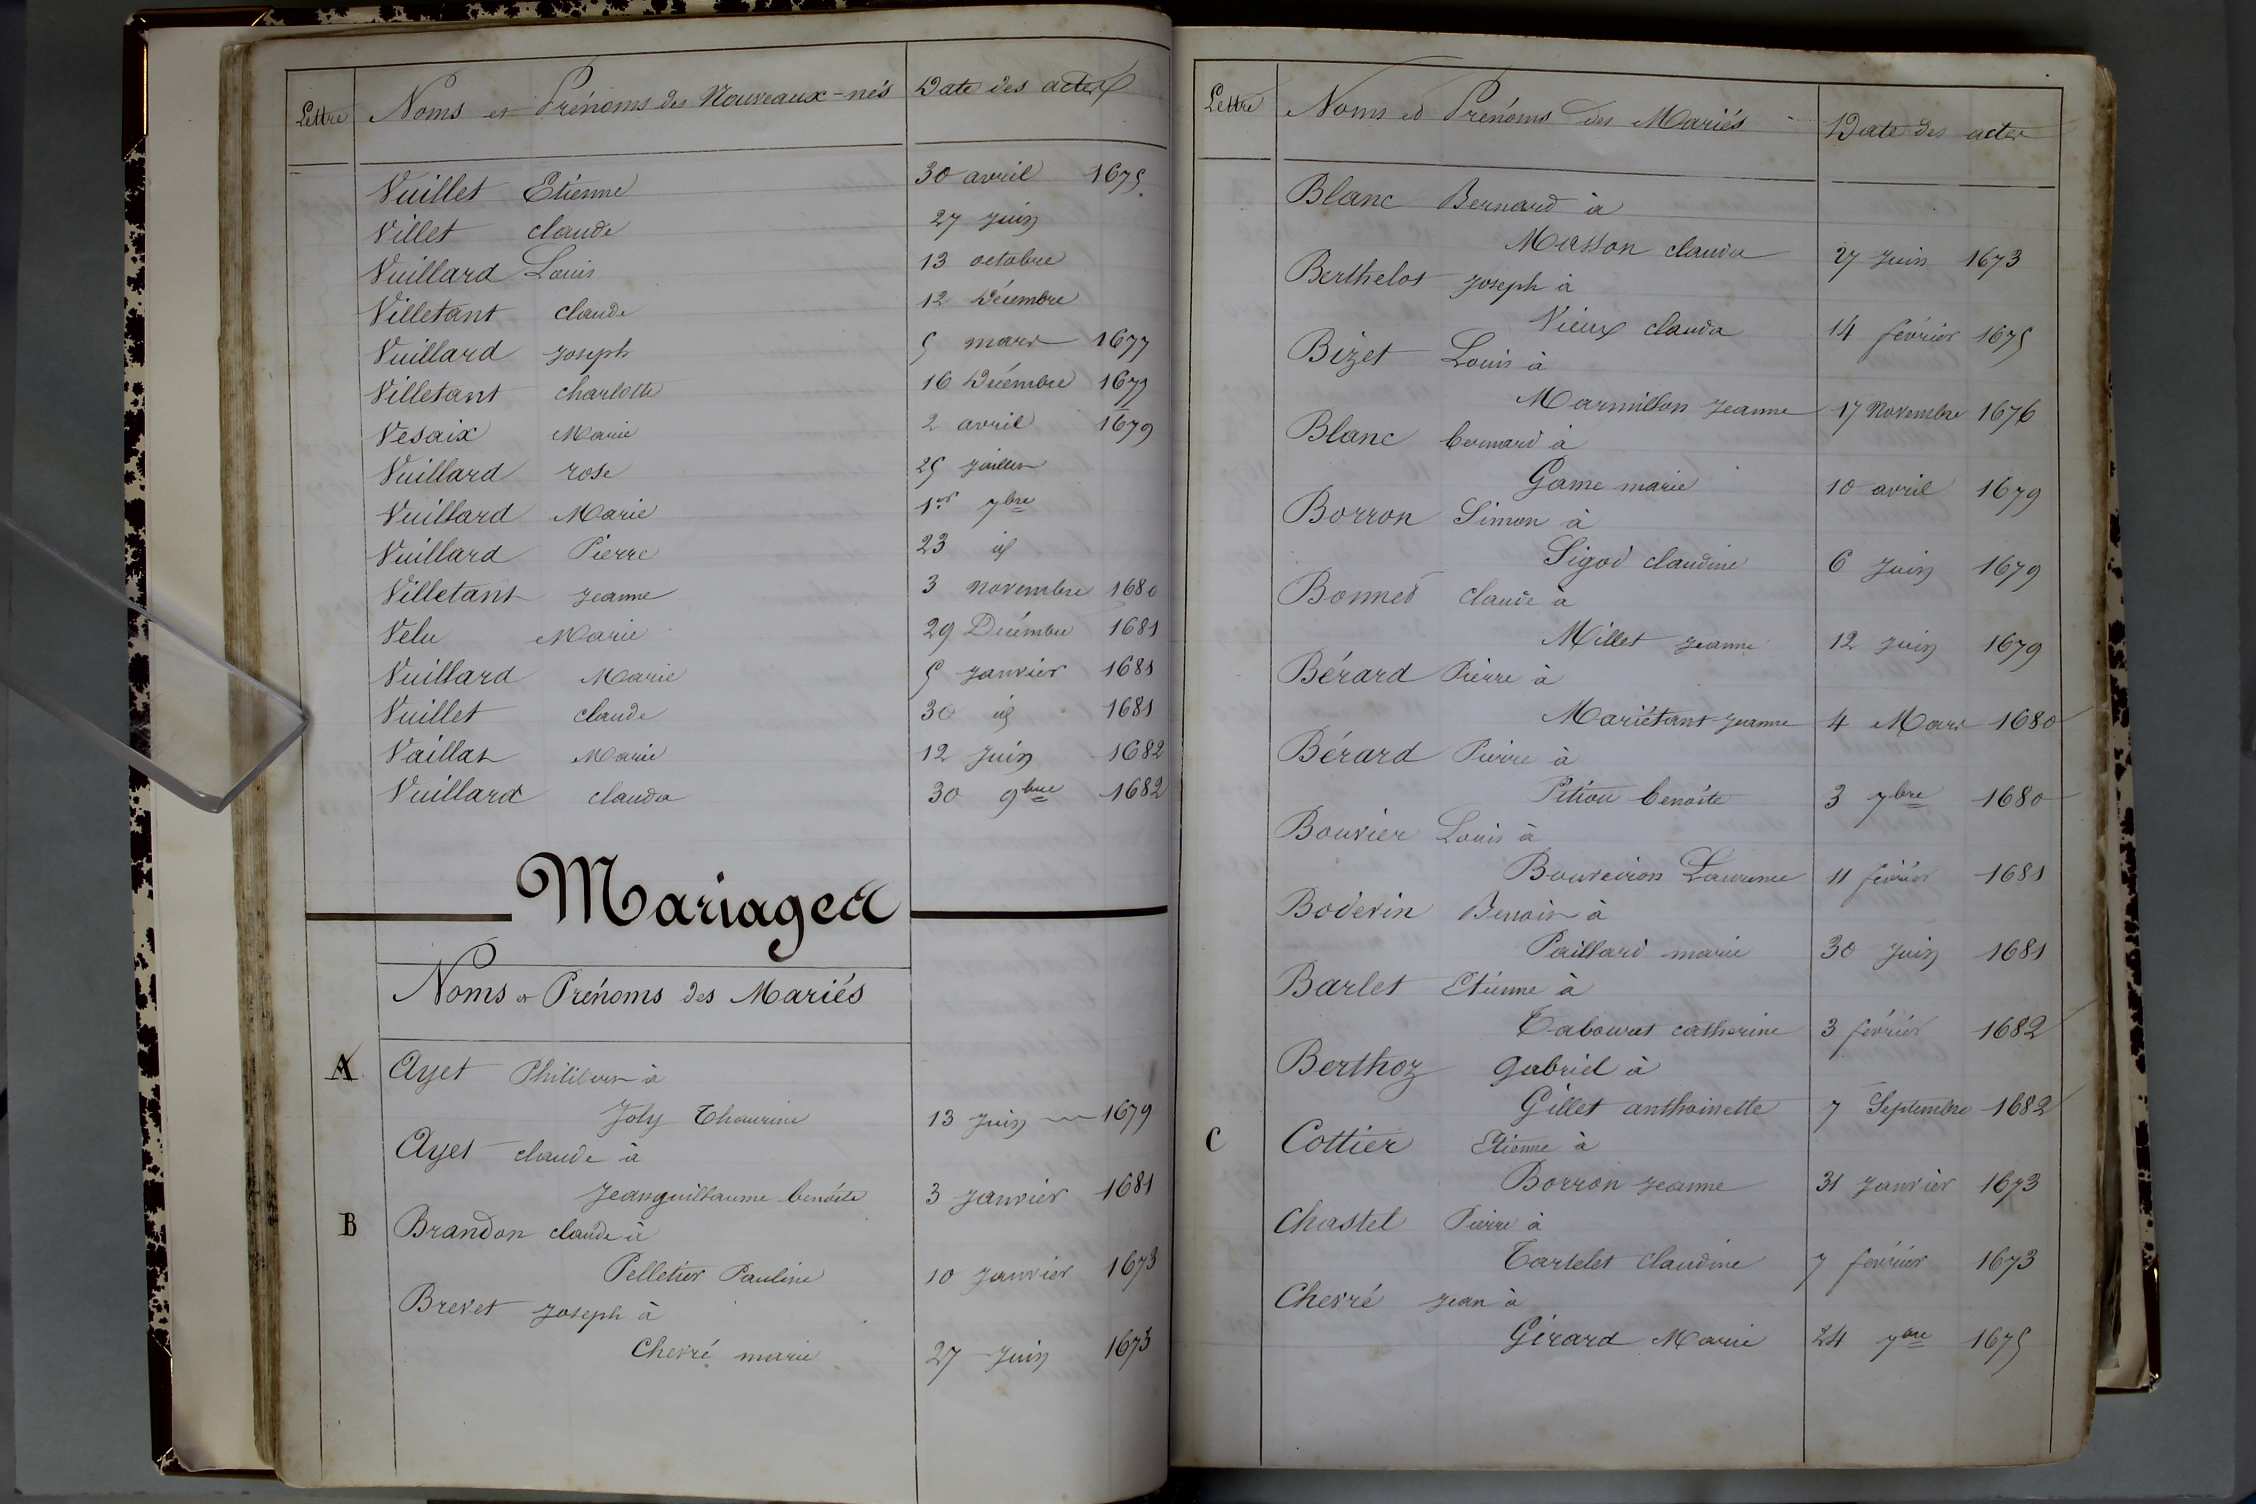 Lettre Noms et Prénoms des Nouveaux-nés Date des actes
Vuillet Etienne 30 avril 1675
Villet claude 27 Juin
Vuillard Louis 13 octobre
Villetant claude 12 Décembre
Vuillard Joseph 5 mars 1677
Villetant charlotte 16 Décembre 1677
Vesaix Marie 2 avril 1679
Vuillard rose 25 Juillet
Vuillard Marie 1er 7bre
Vuillard Pierre 23 id
Villetant Jeanne 3 novembre 1680
Velu Marie 29 Décembre 1681
Vuillard Marie 5 Janvier 1681
Vuillet claude 30 id 1681
Vaillat Marie 12 Juin 1682
Vuillard clauda 30 9bre 1682
Mariages
Noms et Prénoms des Mariés
A Ayet Philibert à
Joly Thaurine 13 Juin 1679
Ayet claude à
Jeanguillaume benoite 3 Janvier 1681
B Brandon claude à
Pelletier Pauline 10 Janvier 1673
Brevet Joseph à
Chevré marie 27 Juin 1673
Lettre Noms et Prénoms des Mariés Date des actes
Blanc Bernard à
Masson clauda 27 Juin 1673
Berthelot Joseph à
Vieux clauda 14 février 1675
Bizet Louis à
Marmillon Jeanne 17 Novembre 1676
Blanc bernard à
Game marie 10 avril 1679
Borron Simon à
Sigod claudine 6 Juin 1679
Bonned claude à
Millet Jeanne 12 Juin 1679
Bérard Pierre à
Mariétant Jeanne 4 Mars 1680
Bérard Pierre à
Petiou benoite 3 7bre 1680
Bouvier Louis à
Bouveiron Laurence 11 février 1681
Bodevin Benoit à
Paillard marie 30 Juin 1681
Barlet Etienne à
Tabouret catherine 3 février 1682
Berthoz Gabriel à
Gillet anthoinette 7 Septembre 1682
C Cottier Etienne à
Borron Jeanne 31 Janvier 1673
Chastel Pierre à
Tartelet Claudine 7 février 1673
Chevré Jean à
Gérard Marie 24 7bre 1675